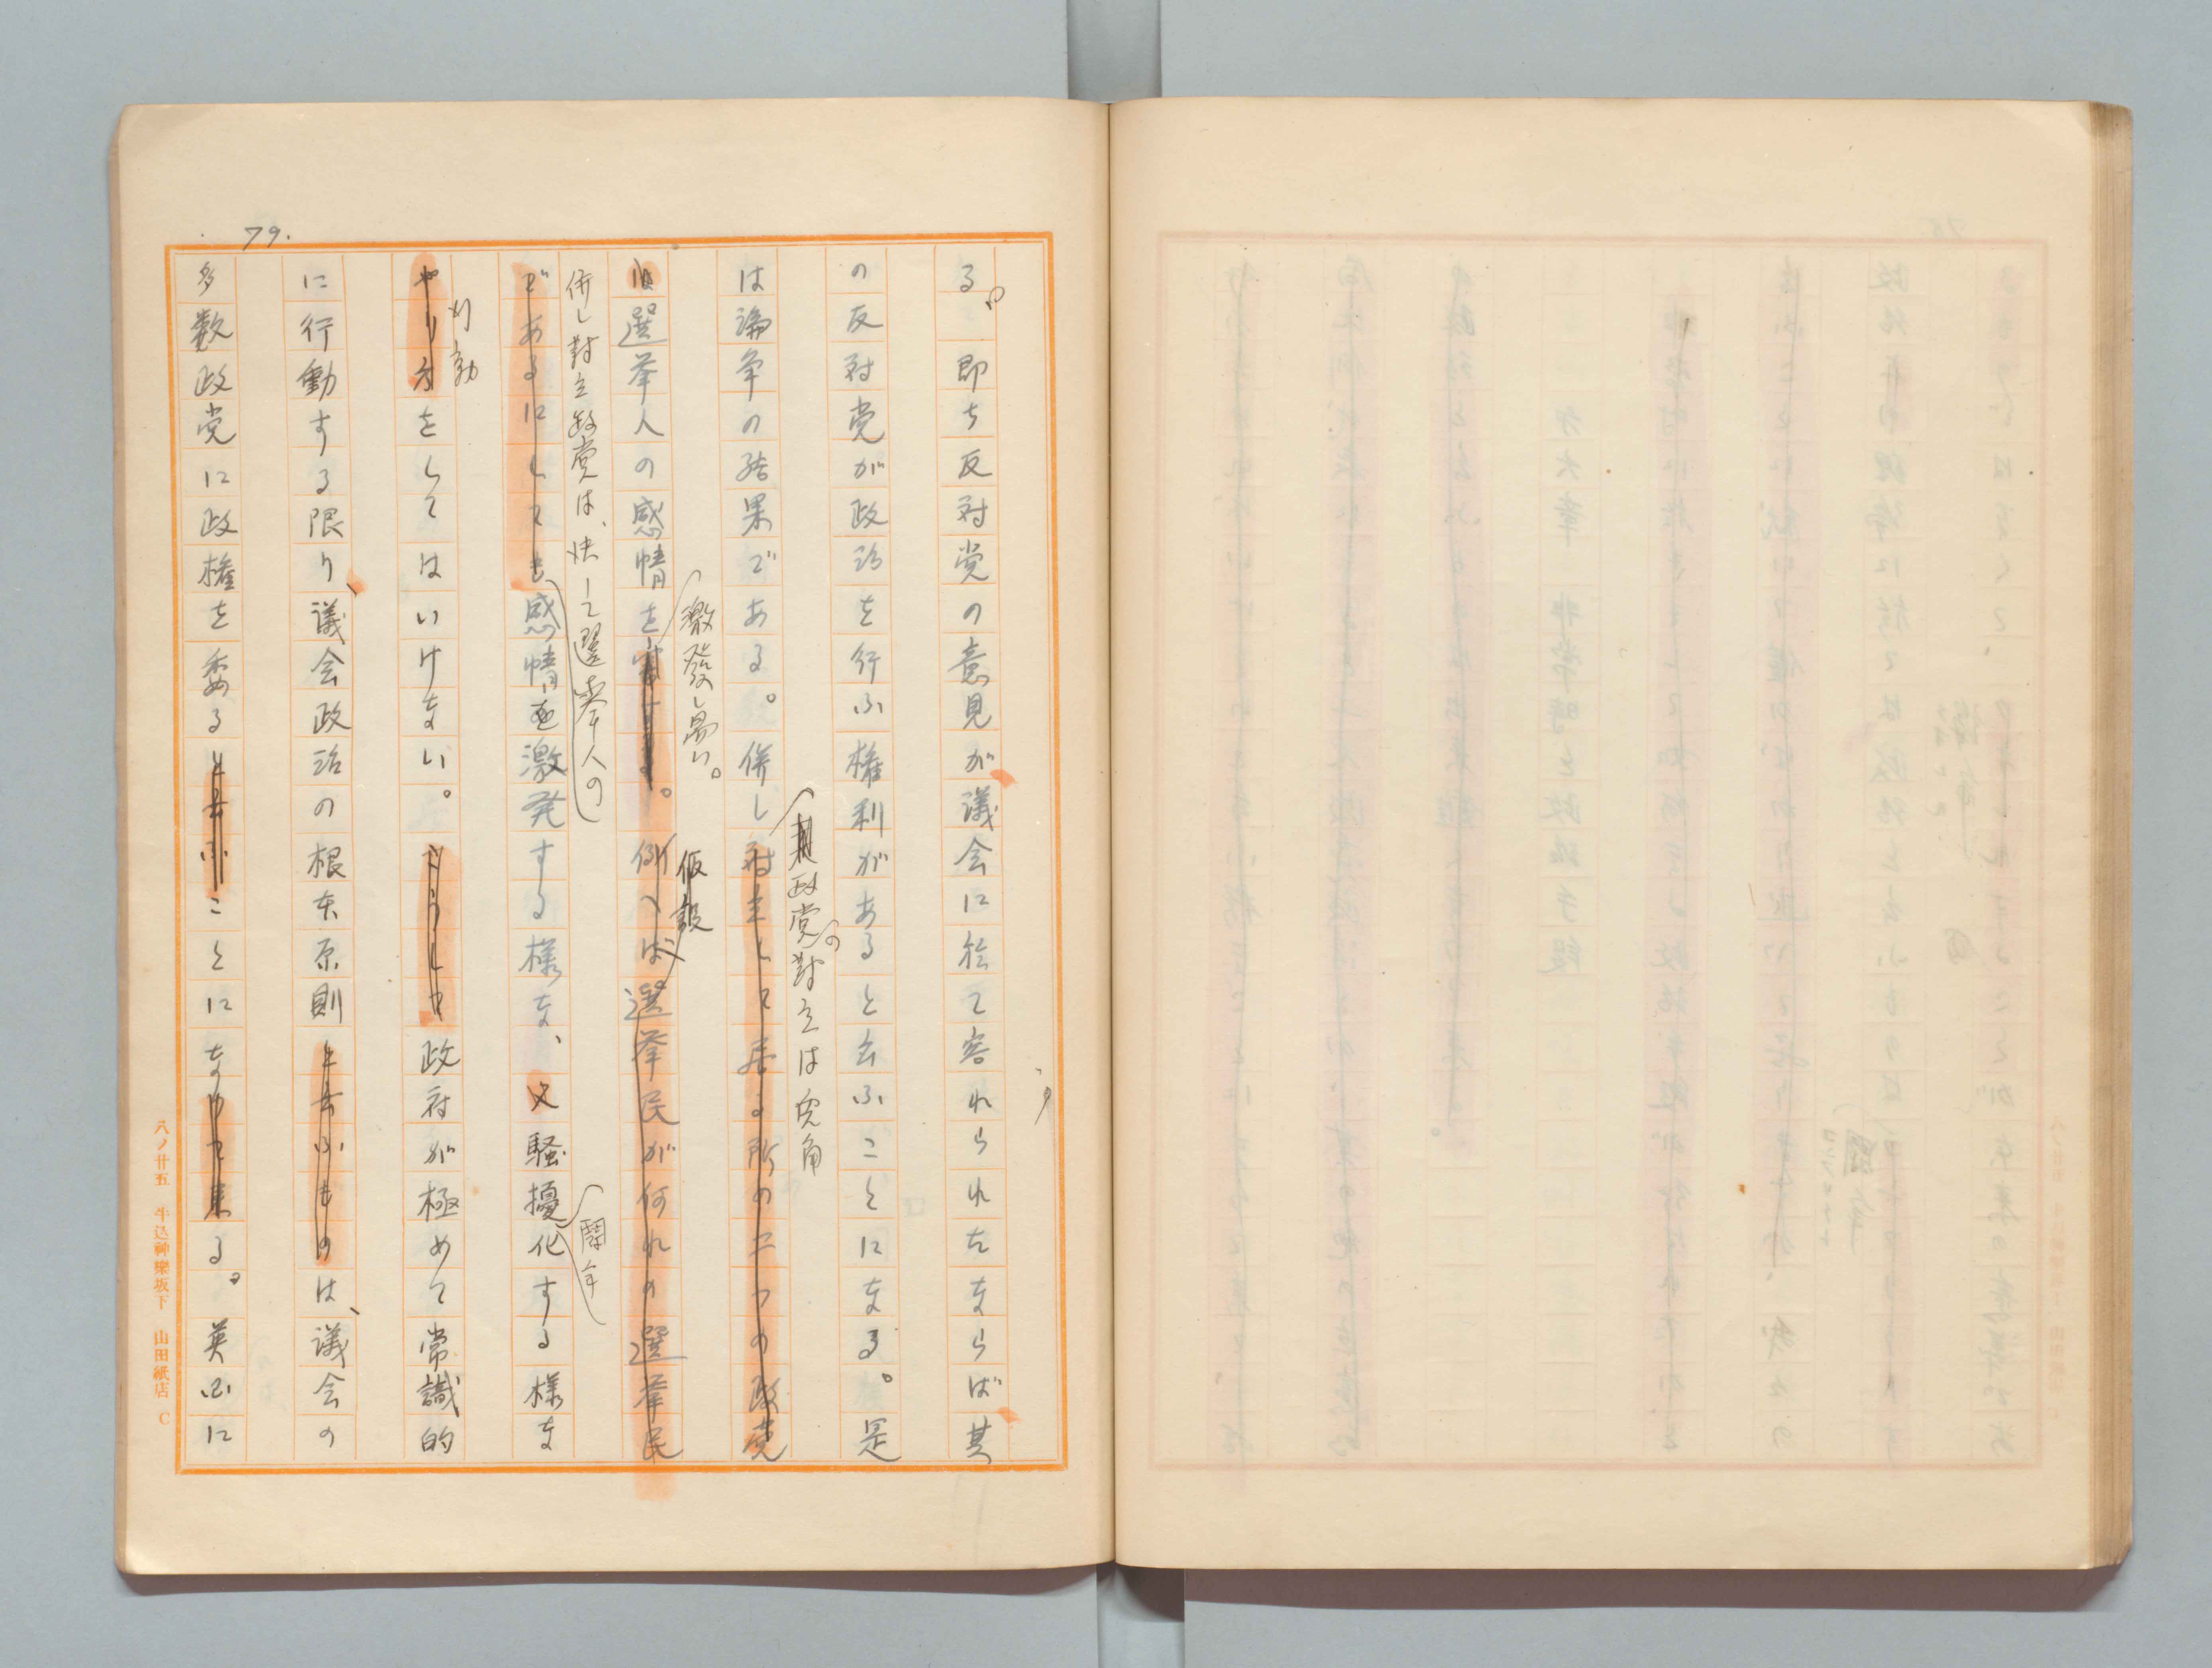 79.
る。即ち反対党の意見が議会に於て容れられたならば其
の反対党が政治を行ふ権利があると云ふことになる。是
は論争の結果である。併し対立して居る所の二つの政党
政党の對立は兎角
は選挙人の感情を
激發し易い。
例へば選挙民が何れの選挙民
仮設
併し對立政党は、決して選挙人の
であるにしても感情を激発する様な、又騒擾化する様な
闘争
やり方をしてはいけない。さうして政府が極めて常識的
行動
に行動する限り、議会政治の根本原則と云ふものは、議会の
多数政党に政権を委ると云ふことになつて来る。英国に
八ノ廿五 牛込神樂坂下 山田紙店 C